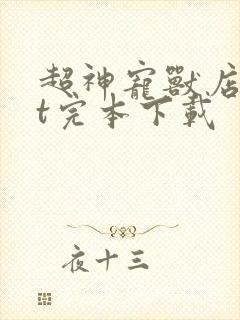 超神寵獸店
t完本下載
夜十三